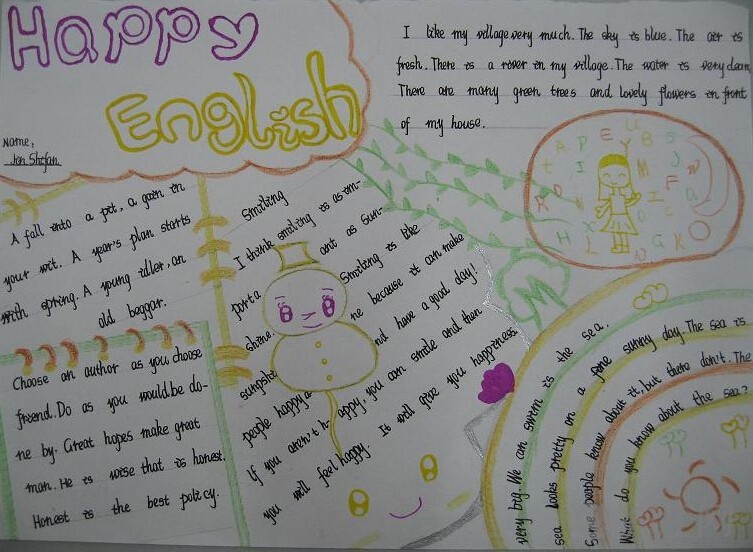 Happy
English
Name:
Jon Shefan.
I like my village very much. The sky is blue. The air is
fresh. There is a rover in my village. The water is very clean
There are many green trees and lovely flowers in front
of my house.
A fall into a pit, a gain in
your wit. A year's plan starts
with spring. A young idler, an
old beggar.
Choose an author as you choose
friend. Do as you would be do-
ne by. Great hopes make great
man. He is wise that is honest.
Honest is the best policy.
Smiling
I think smiling is as im-
porta ant as sun-
shine. Smiling is like
sungshi ne because it can make
people happy a nd have a good day!
If you aren't h- appy, you can smile and then
you will feel happy. It will give you happiness.
A P E U B S
M
very big. We can swim is the sea.
sea looks pretty on a fine sunny day. The sea is
Some people know about it, but there don't. The
What do you know about the sea?